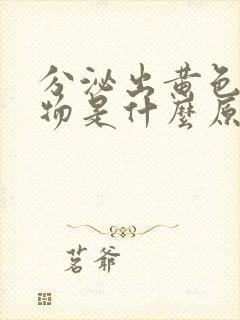 分泌出黄色
物是什麼原
茗爷